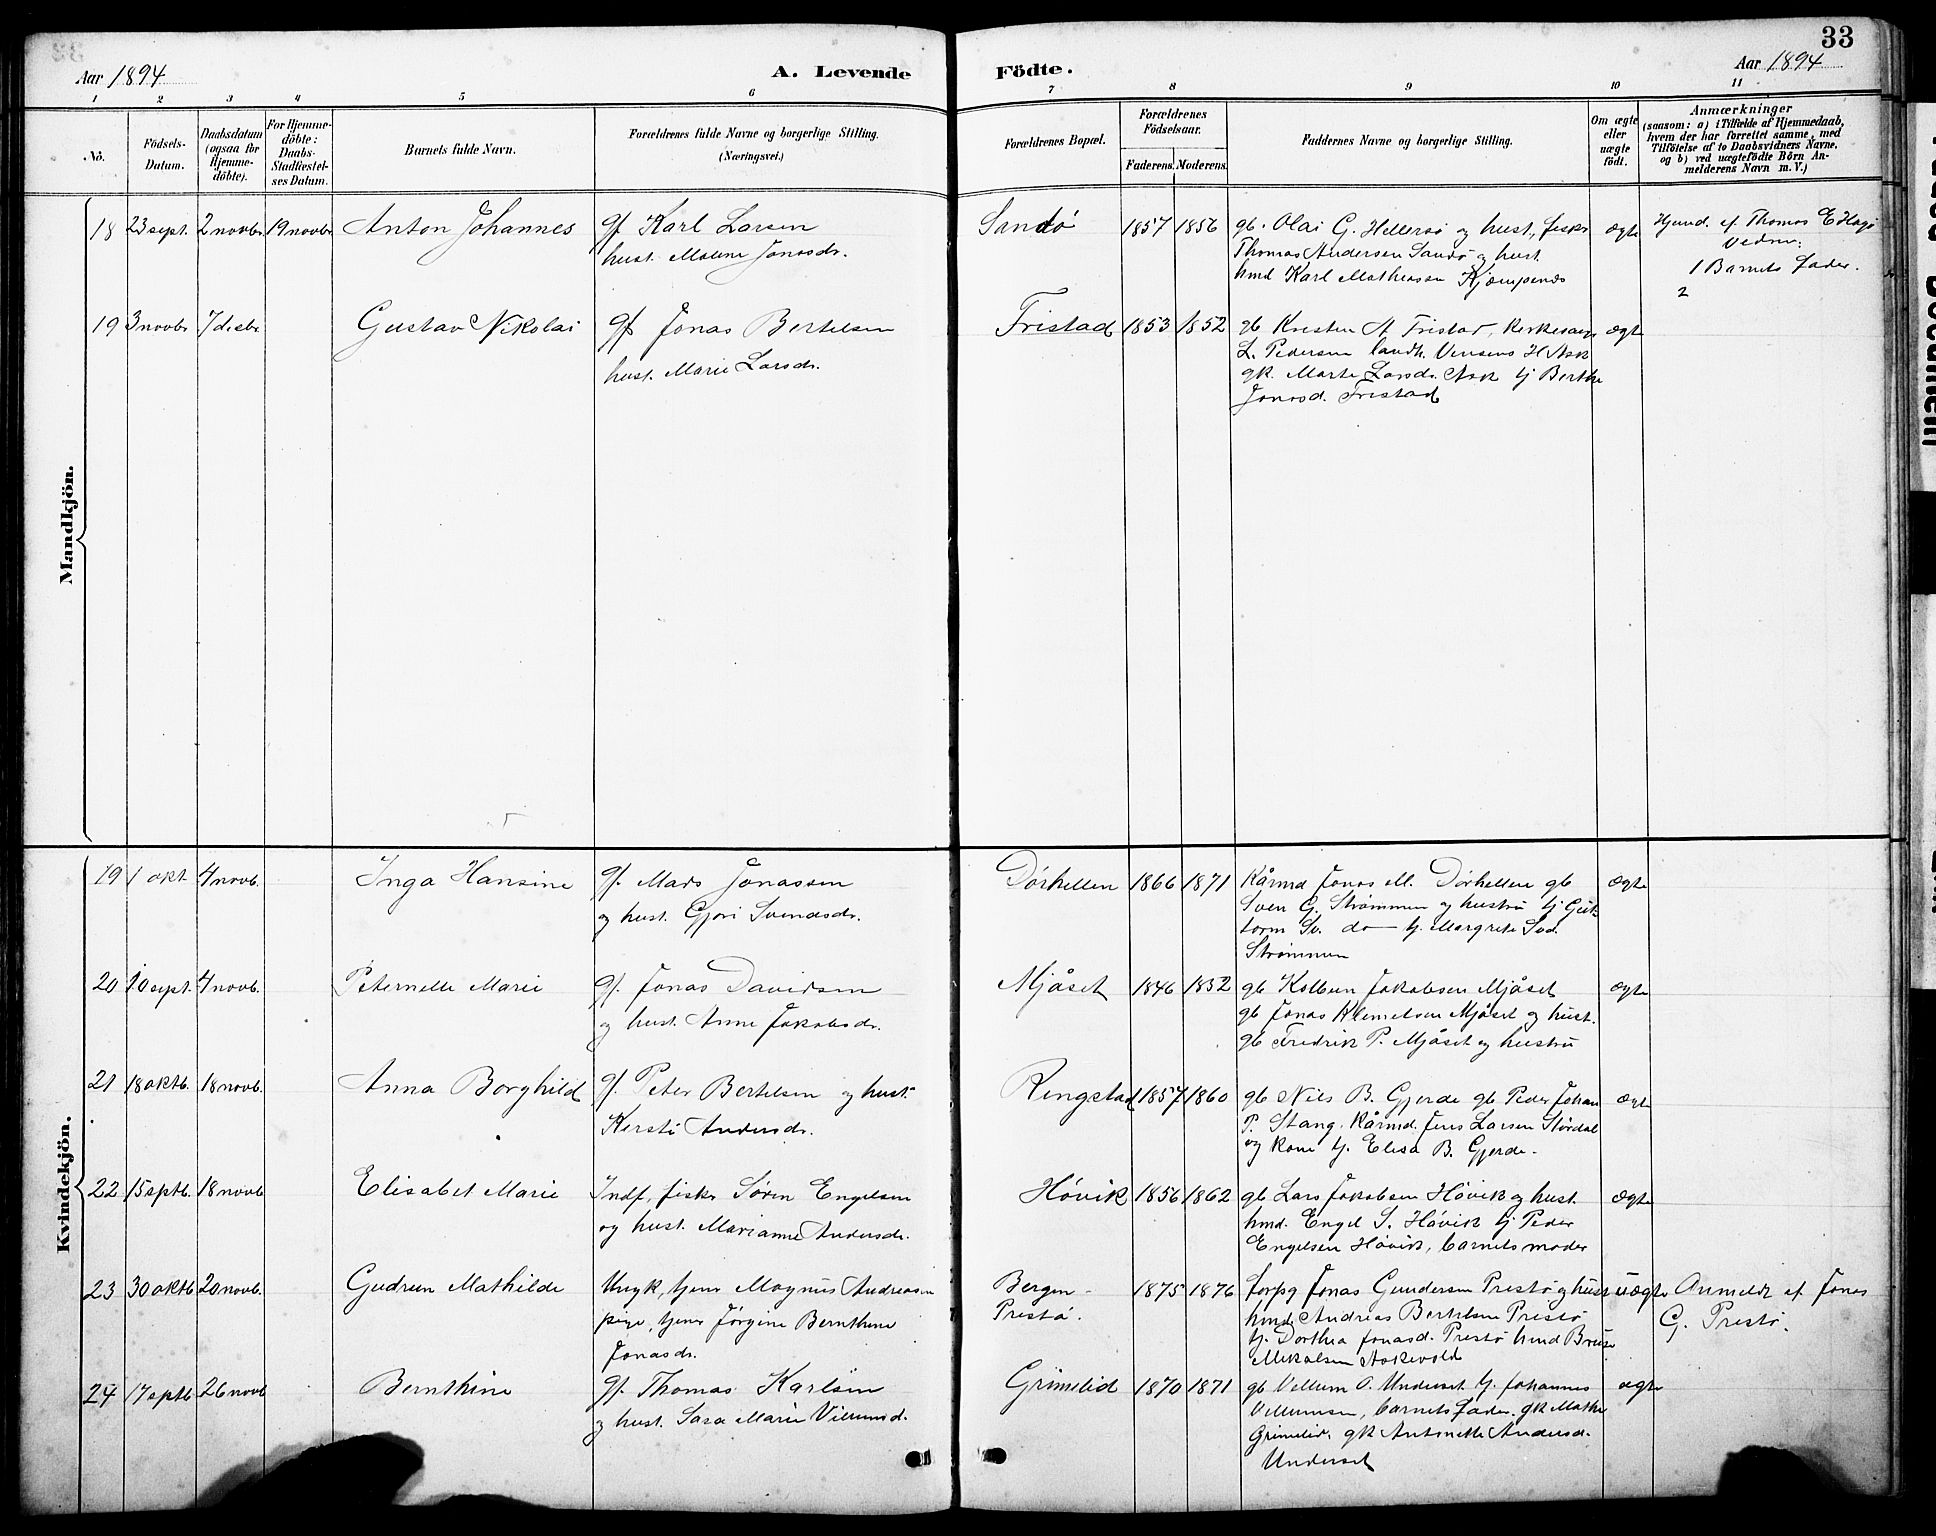 33
Aar 1894
A. Levende
Födte.
Aar 1894
1 2 3 4 5 6 7 8 9 10 11
No.
Födsels-
Datum.
Daabsdatum
(ogsaa for
Hjemme-
döbte).
For Hjemme-
döbte:
Daabs-
Stadfæstel-
ses Datum.
Barnets fulde Navn.
Forældrenes fulde Navne og borgerlige Stilling.
(Næringsvei.)
Forældrenes Bopæl.
Forældrenes
Födselsaar.
Faderens. Moderens.
Faddernes Navne og borgerlige Stilling.
Om ægte
eller
uægte
födt.
Anmærkninger
(saasom: a) i Tilfælde af Hjemmedaab,
hvem der har forrettet samme, med
Tilföielse af to Daabsvidners Navne,
og b) ved uægtefödte Börn An-
melderens Navn m. V.)
Mandkjön.
18 23 sept. 2 novbr. 19 novbr. Anton Johannes gf Karl Larsen
hust. Malene Jonasdr.
Sandö 1857 1856 gb. Olai G. Hellersö og hust., fisker
Thomas Andersen Sandö og hust
hmd Karl Mathiassen Kjempenes
ægte
Hjmd. af Thomas E
1 Barnets Fader.
2
19 3 novbr 7 decbr Gustav Nikolai gf Jonas Bertelsen
hust. Marie Larsdr.
Tristad 1853 1852 gb Kristen A Fristad, Kirkesang.
L. Pedersen landh. H Ask
gk. Marte Larsdr. Ask tj Berthe
Jonasd. Fristad
ægte
Kvindekjön.
19 1 okt. 4 novb. Inga Hansine gf. Mads Jonassen
og hust. Gjøri Svendsdr.
Dörhellen 1866 1871 Kårmd Jonas M. Dörhellen gb
Sven G. Strömmen og hustru tj Gut-
torm Sv. do tj. Margrete Svd.
Strömmen
ægte
20 10 sept. 4 novb. Peternelle Marie gf. Jonas Davidsen
og hust. Anne Jakobsdr.
Mjåset 1846 1852 gb Kolbein Jakobsen Mjåset
gb Jonas Klemetsen Mjåset og hust.
gb Fredrik P. Mjåset og hustru
ægte
21 18 oktb. 18 novb. Anna Borghild gf. Peter Bertelsen og hust.
Kersti Andersdr.
Ringstad 1857 1860 gb Nils B. Gjerde gb Peder Johan
P. Stang. Kårmd. Jens Larsen Stördal
og kone tj. Elisa B. Gjerde.
ægte
22 15 septb. 18 novb Elisabet Marie Indf, fisker Sören Engelsen
og hust. Marianne Andersdr.
Hövik 1856 1862 gb Lars Jakobsen Hövik og hust.
hmd. Engel S. Hövik tj Peder
Engelsen Hövik, barnets moder
ægte
23 30 oktb 20 novb. Gudrun Mathilde Ungk, tjener Magnus Andreasen
pige, tjener Jörgine Bernthine
Jonasdr.
Bergen -
Prestö.
1875 1876 forpg Jonas Gundersen Prestö og hust
hmd Andreas Bertelsen Prestö
tj. Dorthea Jonasd. Prestö hmd
Mikalsen Askevold
uægte Anmeldt af Jonas
G. Prestö.
24 17 septb 26 novb Bernthine gf. Thomas Karlsen
og hust. Sara Marie Villumsd.
Grimelid 1870 1871 gb Villum O. Underset tj. Johannes
Villumsen, barnets fader. gk Mathe
Grimelid. gk Antonette Andersd.
Underset
ægte